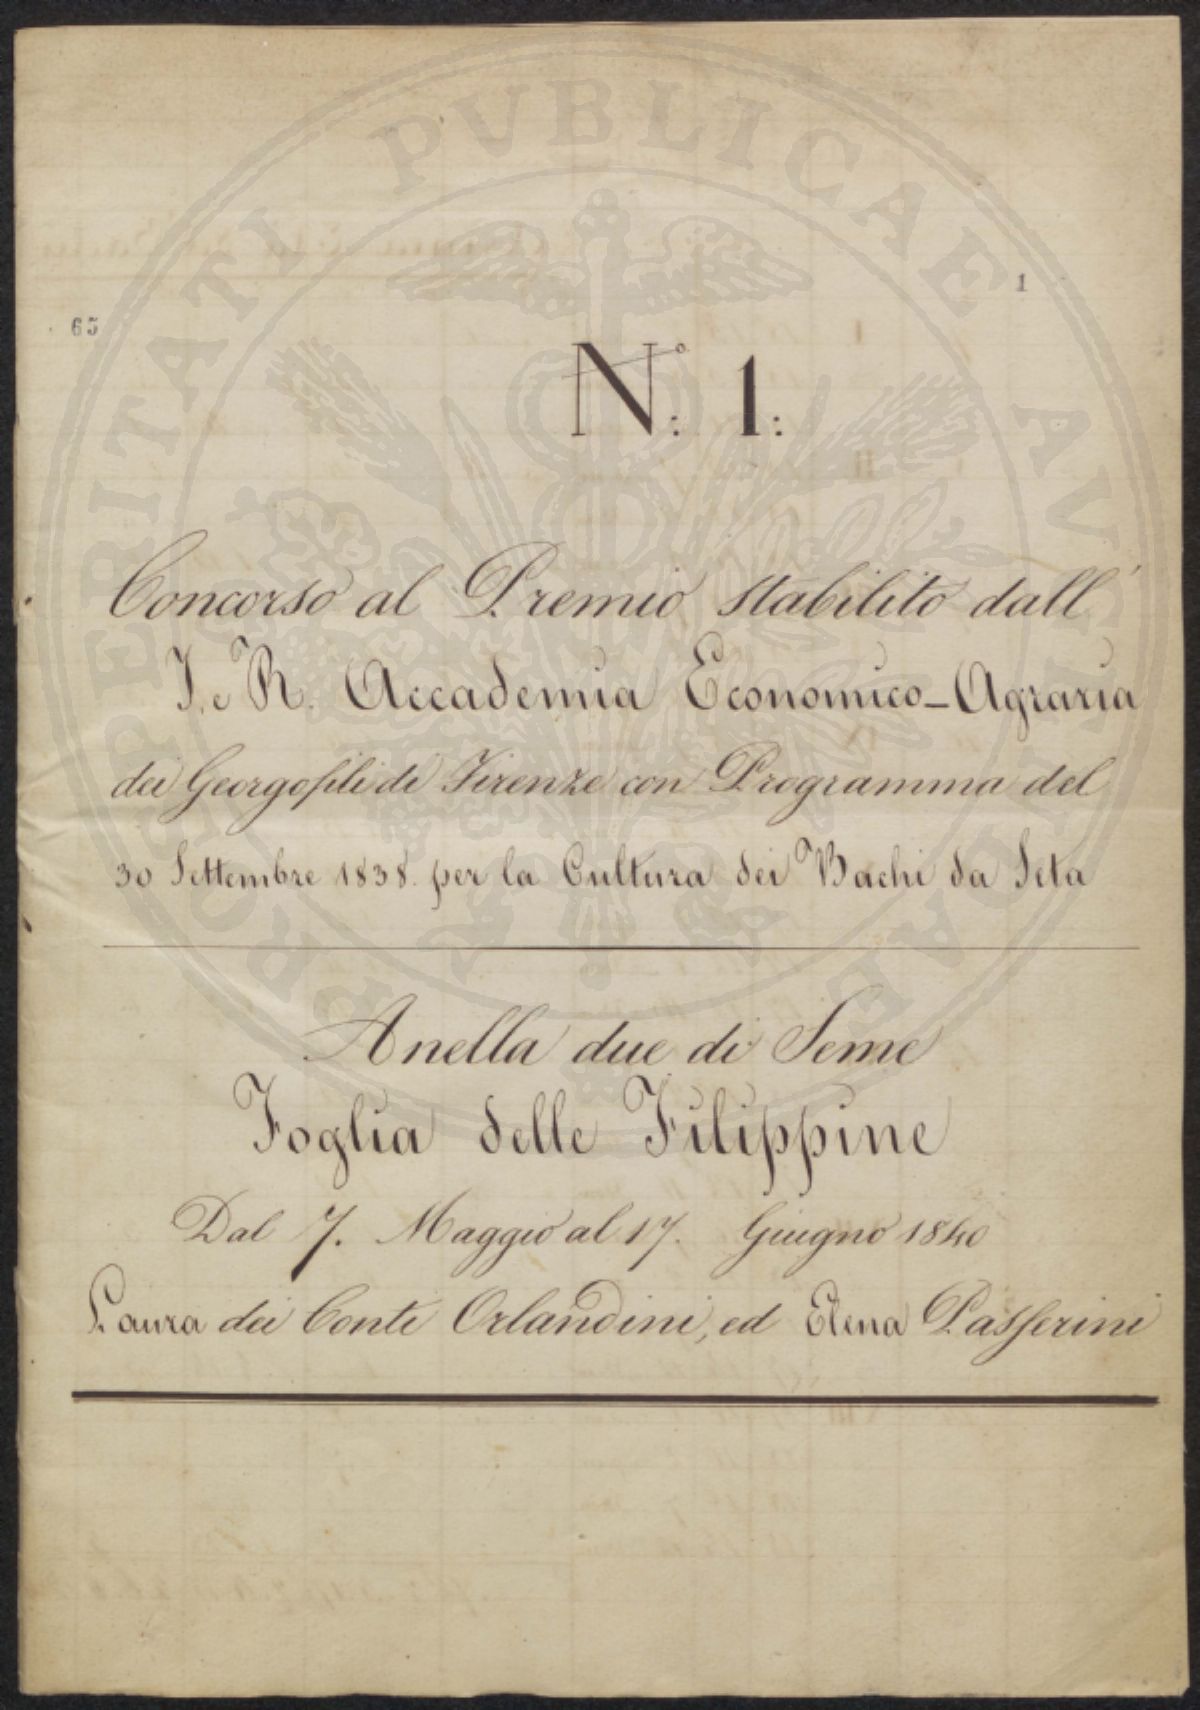 PROSPERITATI PUBLICAE AUGENDAE
65
1
N.º: 1:
Concorso al Premio stabilito dall'
I. e R. Accademia Economico-Agraria
dei Georgofili di Firenze con Programma del
30 Settembre 1838. per la Cultura dei Bachi da Seta
Anella due di Seme
Foglia delle Filippine
Dal 7. Maggio al 17. Giugno 1840
Laura dei Conti Orlandini, ed Elena Passerini